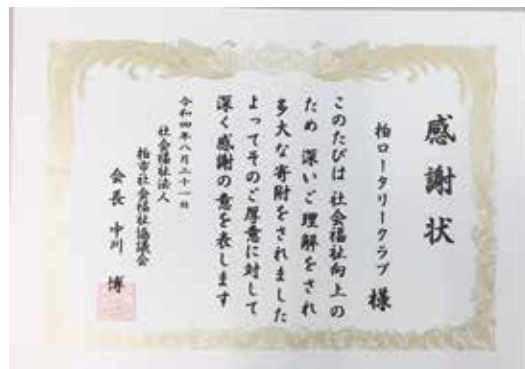 感謝状
柏ロータリークラブ 様
このたびは 社会福祉向上の
ため 深いご理解をされ
多大な寄附をされました
よってそのご厚意に対して
深く感謝の意を表します
令和四年八月三十一日
社会福祉法人
柏市社会福祉協議会
会長 中川 博